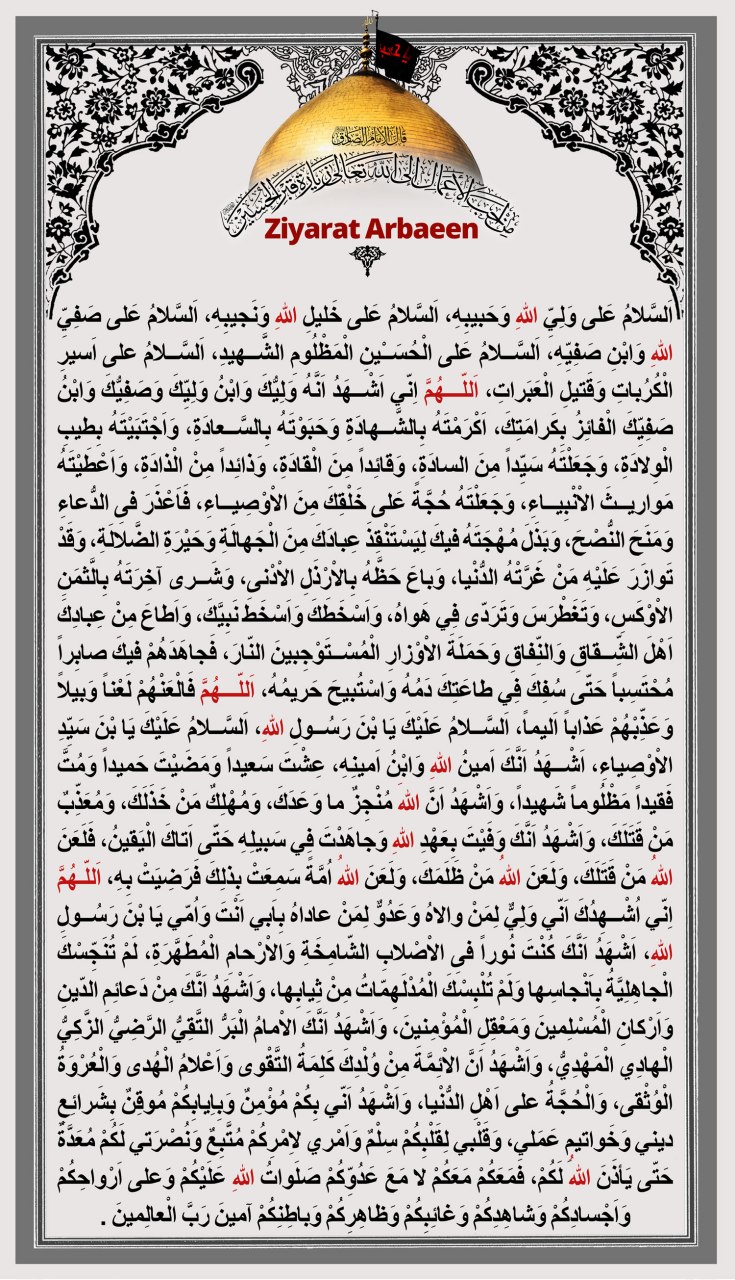 قال الامام الصادق
من احب الاعمال الى الله تعالى زيارة قبر الحسين
Ziyarat Arbaeen
اَلسَّلامُ عَلى وَلِيِّ اللهِ وَحَبيبِهِ، اَلسَّلامُ عَلى خَليلِ اللهِ وَنَجيبِهِ، اَلسَّلامُ عَلى صَفِيِّ
اللهِ وَابْنِ صَفِيِّهِ، اَلسَّلامُ عَلى الْحُسَيْنِ الْمَظْلُومِ الشَّهيدِ، اَلسَّلامُ على اَسيرِ
الْكُرُباتِ وَقَتيلِ الْعَبَراتِ، اَللّـهُمَّ اِنّي اَشْهَدُ اَنَّهُ وَلِيُّكَ وَابْنُ وَلِيِّكَ وَصَفِيُّكَ وَابْنُ
صَفِيِّكَ الْفائِزُ بِكَرامَتِكَ، اَكْرَمْتَهُ بِالشَّهادَةِ وَحَبَوْتَهُ بِالسَّعادَةِ، وَاَجْتَبَيْتَهُ بِطيبِ
الْوِلادَةِ، وَجَعَلْتَهُ سَيِّداً مِنَ السادَةِ، وَقائِداً مِنَ الْقادَةِ، وَذائِداً مِنْ الْذادَةِ، وَاَعْطَيْتَهُ
مَواريثَ الاَْنْبِياءِ، وَجَعَلْتَهُ حُجَّةً عَلى خَلْقِكَ مِنَ الاَْوْصِياءِ، فَاَعْذَرَ فى الدُّعاءِ
وَمَنَحَ النُّصْحَ، وَبَذَلَ مُهْجَتَهُ فيكَ لِيَسْتَنْقِذَ عِبادَكَ مِنَ الْجَهالَةِ وَحَيْرَةِ الضَّلالَةِ، وَقَدْ
تَوازَرَ عَلَيْهِ مَنْ غَرَّتْهُ الدُّنْيا، وَباعَ حَظَّهُ بِالاَْرْذَلِ الاَْدْنى، وَشَرى آخِرَتَهُ بِالَّثمَنِ
الاَْوْكَسِ، وَتَغَطْرَسَ وَتَرَدّى فِي هَواهُ، وَاَسْخَطَكَ وَاَسْخَطَ نَبِيَّكَ، وَاَطاعَ مِنْ عِبادِكَ
اَهْلَ الشِّقاقِ وَالنِّفاقِ وَحَمَلَةَ الاَْوْزارِ الْمُسْتَوْجِبينَ النّارَ، فَجاهَدَهُمْ فيكَ صابِراً
مُحْتَسِباً حَتّى سُفِكَ فِي طاعَتِكَ دَمُهُ وَاسْتُبيحَ حَريمُهُ، اَللّـهُمَّ فَالْعَنْهُمْ لَعْناً وَبيلاً
وَعَذِّبْهُمْ عَذاباً اَليماً، اَلسَّلامُ عَلَيْكَ يَا بْنَ رَسُولِ اللهِ، اَلسَّلامُ عَلَيْكَ يَا بْنَ سَيِّدِ
الاَْوْصِياءِ، اَشْهَدُ اَنَّكَ اَمينُ اللهِ وَابْنُ اَمينِهِ، عِشْتَ سَعيداً وَمَضَيْتَ حَميداً وَمُتَّ
فَقيداً مَظْلُوماً شَهيداً، وَاَشْهَدُ اَنَّ اللهَ مُنْجِزٌ ما وَعَدَكَ، وَمُهْلِكٌ مَنْ خَذَلَكَ، وَمُعَذِّبٌ
مَنْ قَتَلَكَ، وَاَشْهَدُ اَنَّكَ وَفَيْتَ بِعَهْدِ اللهِ وَجاهَدْتَ فِي سَبيلِهِ حَتّى اَتاكَ الْيَقينُ، فَلَعَنَ
اللهُ مَنْ قَتَلَكَ، وَلَعَنَ اللهُ مَنْ ظَلَمَكَ، وَلَعَنَ اللهُ اُمَّةً سَمِعَتْ بِذلِكَ فَرَضِيَتْ بِهِ، اَللّـهُمَّ
اِنّي اُشْهِدُكَ اَنّي وَلِيٌّ لِمَنْ والاهُ وَعَدُوٌّ لِمَنْ عاداهُ بِاَبي اَنْتَ وَاُمّي يَا بْنَ رَسُولِ
اللهِ، اَشْهَدُ اَنَّكَ كُنْتَ نُوراً فى الاَْصْلابِ الشّامِخَةِ وَالاَْرْحامِ الْمُطَهَّرَةِ، لَمْ تُنَجِّسْكَ
الْجاهِلِيَّةُ بِاَنْجاسِها وَلَمْ تُلْبِسْكَ الْمُدْلَهِمّاتُ مِنْ ثِيابِها، وَاَشْهَدُ اَنَّكَ مِنْ دَعائِمِ الدّينِ
وَاَرْكانِ الْمُسْلِمينَ وَمَعْقِلِ الْمُؤْمِنينَ، وَاَشْهَدُ اَنَّكَ الاِْمامُ الْبَرُّ التَّقِيُّ الرَّضِيُّ الزَّكِيُّ
الْهادِي الْمَهْدِيُّ، وَاَشْهَدُ اَنَّ الاَْئِمَّةَ مِنْ وُلْدِكَ كَلِمَةُ التَّقْوى وَاَعْلامُ الْهُدى وَالْعُرْوَةُ
الْوُثْقى، وَالْحُجَّةُ على اَهْلِ الدُّنْيا، وَاَشْهَدُ اَنّي بِكُمْ مُؤْمِنٌ وَبِاِيابِكُمْ مُوقِنٌ بِشَرائِعِ
ديني وَخَواتيمِ عَمَلي، وَقَلْبي لِقَلْبِكُمْ سِلْمٌ وَاَمْري لاَِمْرِكُمْ مُتَّبِعٌ وَنُصْرَتي لَكُمْ مُعَدَّةٌ
حَتّى يَأذَنَ اللهُ لَكُمْ، فَمَعَكُمْ مَعَكُمْ لا مَعَ عَدُوِّكُمْ صَلَواتُ اللهِ عَلَيْكُمْ وَعلى اَرْواحِكُمْ
وَاَجْسادِكُمْ وَشاهِدِكُمْ وَغائِبِكُمْ وَظاهِرِكُمْ وَباطِنِكُمْ آمينَ رَبَّ الْعالِمينَ .